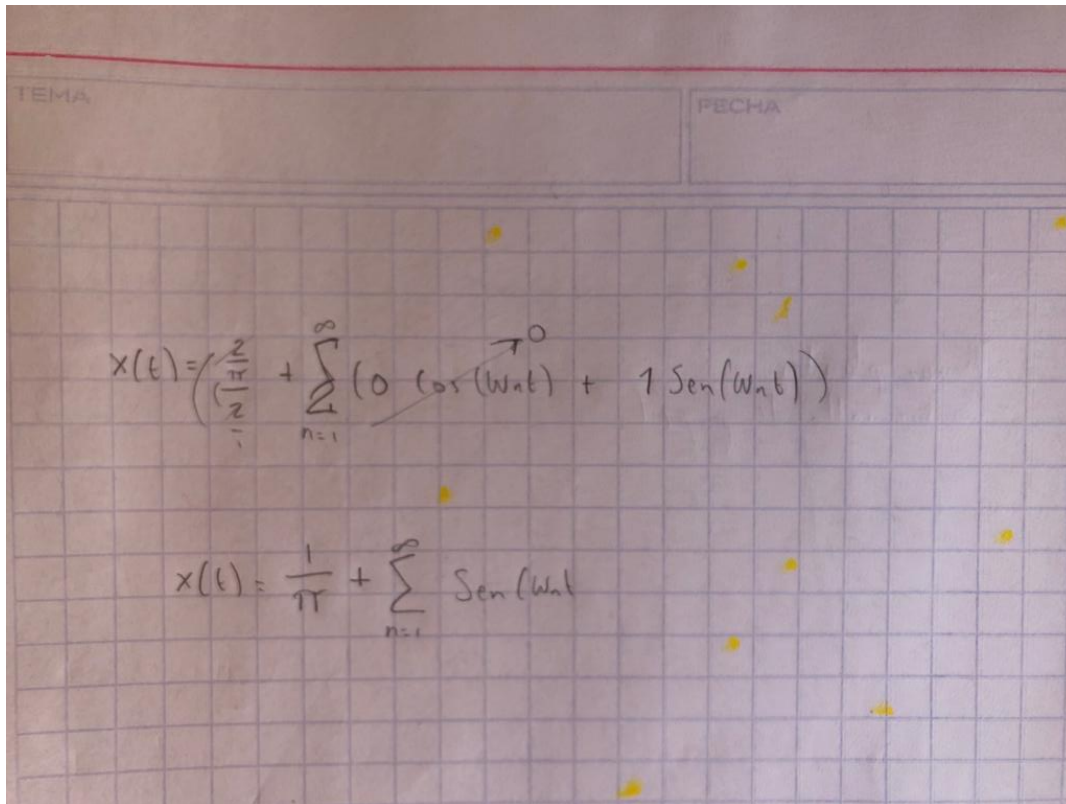 TEMA
FECHA
x(t) = ( (2/π)/2 + ∑_{n=1}^{∞} (0 Cos(Wnt) →0 + 1 Sen(Wnt) )
x(t) = 1/π + ∑_{n=1}^{∞} Sen(Wnt